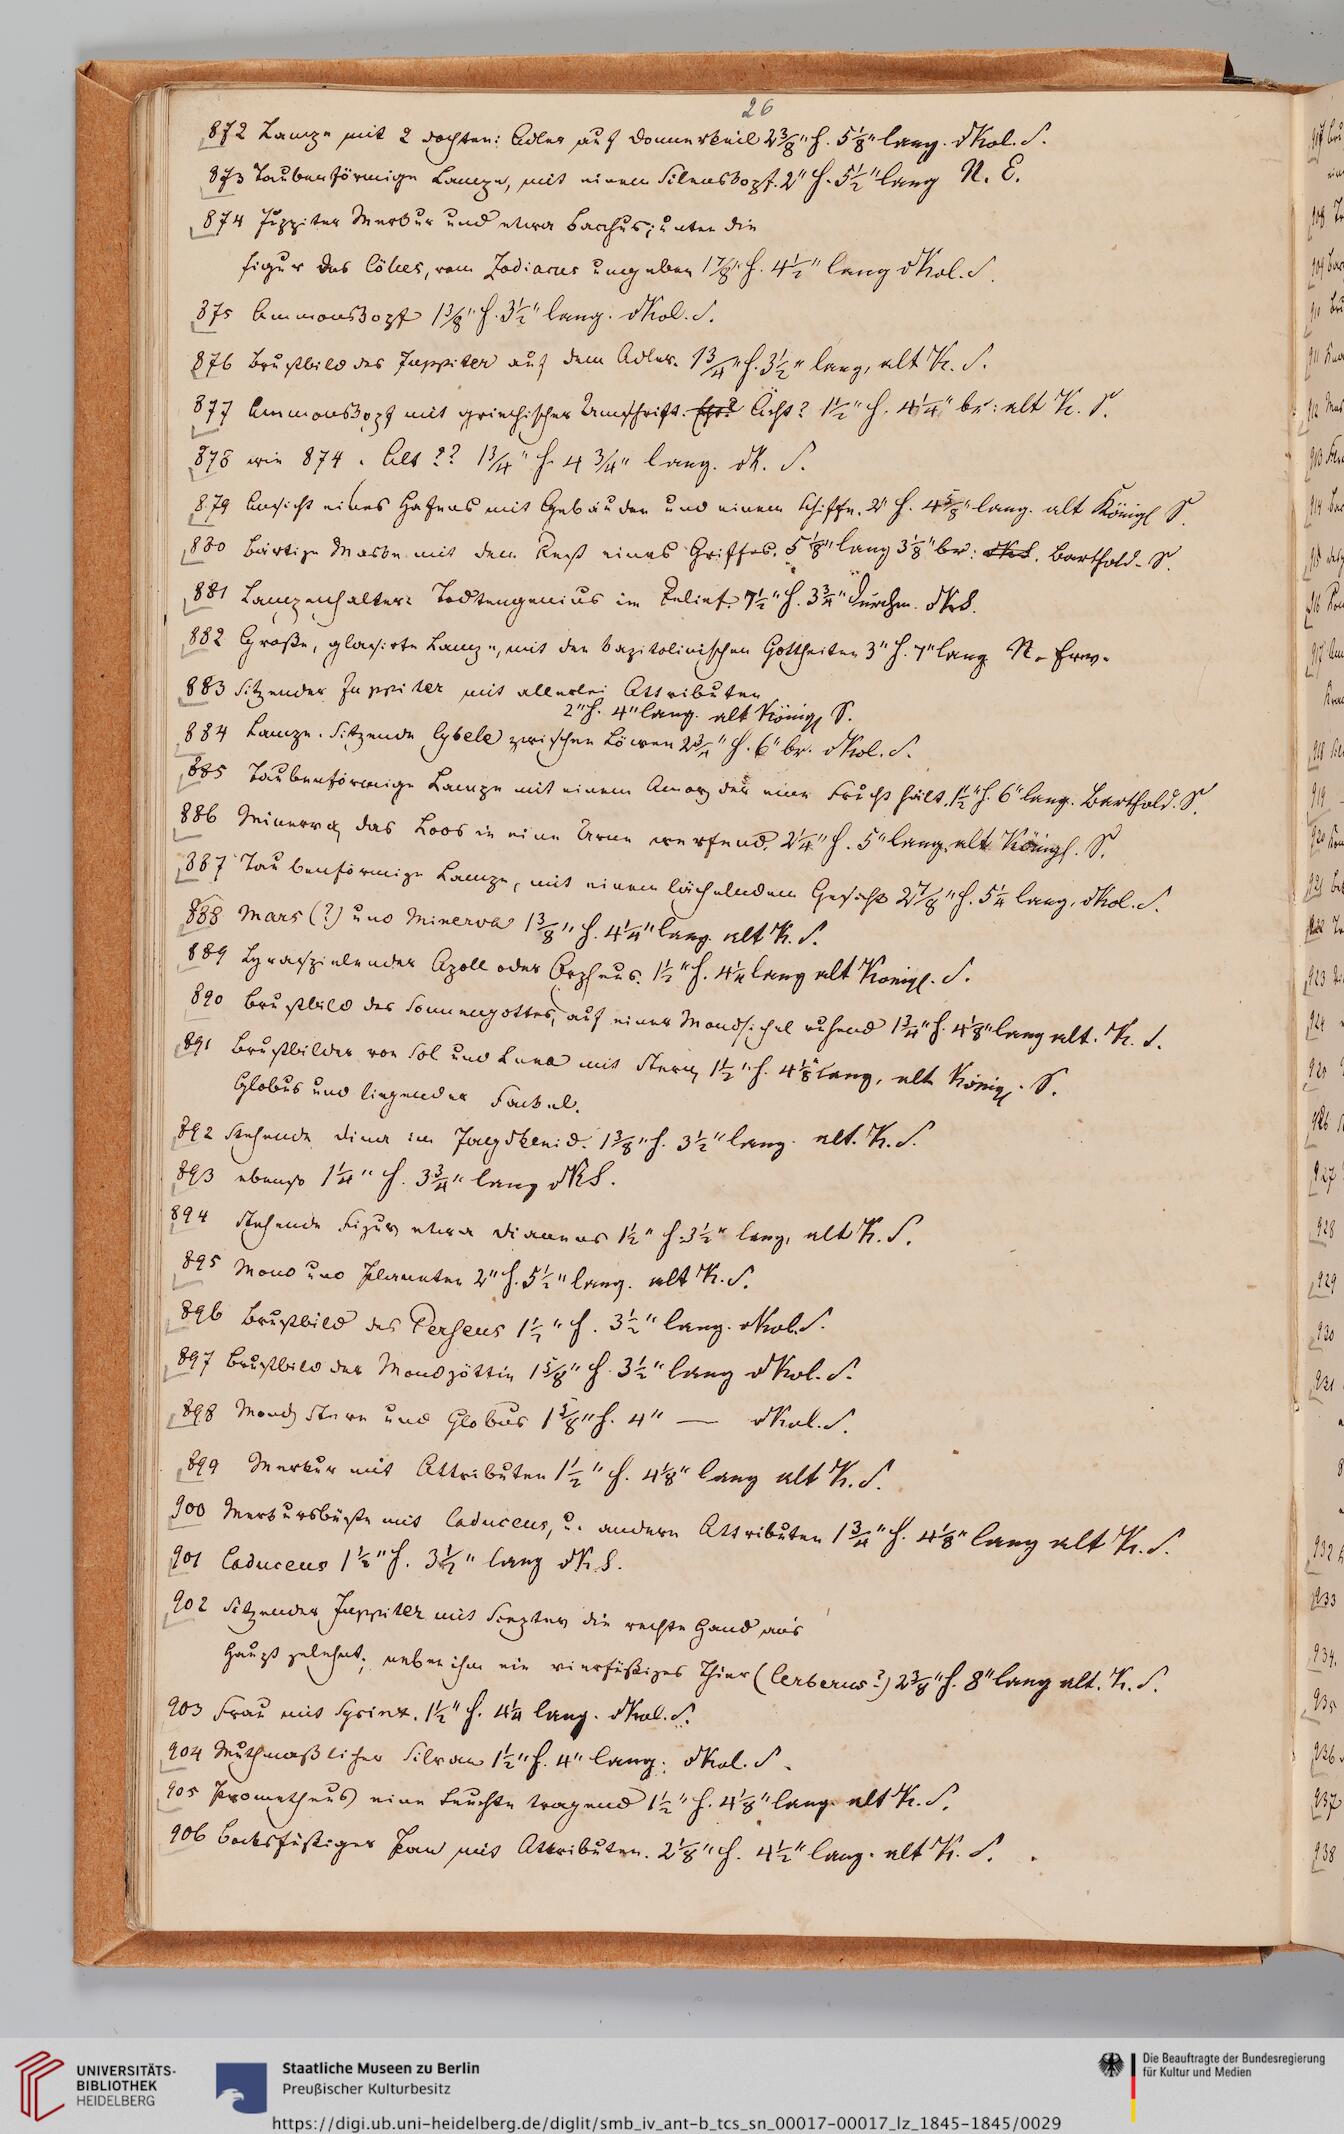 26
872 Lampe mit 2 dochten: Adler auf Donnerkeil 2 3/8" h. 5 1/8" lang. dKol. S.
873 Taubenförmige Lampe, mit einem Silenskopf. 2" h. 5 1/2" lang N. E.
874 Juppiter Merkur und etwa Bacchus; unten die
figur des Cölus, vom Zodiacus umgeben 1 7/8" h. 4 1/2" lang dKol. S.
875 Ammonskopf 1 3/8" h. 3 1/2" lang. dKol. S.
876 Brustbild des Juppiter auf dem Adler. 1 3/4" h. 3 1/2" lang, alt K. S.
877 Ammonskopf mit griechischer Umschrift. Ächt? 1 1/2" h. 4 1/4" br: alt K. S.
878 wie 874. Alt?? 1 3/4" h. 4 3/4" lang. dK. S.
879 Ansicht eines Hafens mit Gebäuden und einem Schiffe. 2" h. 4 5/8" lang. alt Königl S.
880 Bärtige Maske mit dem Rest eines Griffes. 5 1/8" lang 3 1/8" br: dKS. Barthold. S.
881 Lampenhalter: Todtengenius im Relief. 7 1/2" h. 3 3/4" durchm. dKS.
882 Große, glasirte Lampe, mit den kapitolinischen Gottheiten 3" h. 7" lang N. Erw.
883 Sitzender Juppiter mit allerlei Attributen
2" h. 4" lang. alt Königl S.
884 Lampe. Sitzende Cybele zwischen Löwen 2 3/4" h. 6" br. dKol. S.
885 Taubenförmige Lampe mit einem Amor, der eine Frucht hält. 1 1/2" h. 6" lang. Barthold. S.
886 Minerva, das Loos in eine Urne werfend. 2 1/4" h. 5" lang. alt Königl. S.
887 Taubenförmige Lampe, mit einem lächelnden Gesicht 2 7/8" h. 5 1/4 lang. dKol. S.
888 Mars (?) und Minerva 1 3/8" h. 4 1/4" lang. alt K. S.
889 Lyraspielender Apoll oder Orpheus. 1 1/2" h. 4 1/4 lang alt Königl. S.
890 Brustbild des Sonnengottes, auf einer Mondsichel ruhend 1 3/4" h. 4 1/8" lang alt. K. S.
891 Brustbilder von Sol und Luna mit Stern, 1 1/2" h. 4 1/8" lang, alt Königl. S.
Globus und liegender Fackel.
892 Stehende Diana im Jagdkleid. 1 3/8" h. 3 1/2" lang. alt. K. S.
893 ebenso 1 1/4" h. 3 3/4" lang dKS.
894 Stehende Figur, etwa Dianens 1 1/2" h. 3 1/2" lang, alt K. S.
895 Mond und Planeten 2" h. 5 1/2" lang. alt K. S.
896 Brustbild des Perseus 1 1/2" h. 3 1/2" lang. dKol. S.
897 Brustbild der Mondgöttin 1 5/8" h. 3 1/2" lang dKol. S.
898 Mond, Stern und Globus 1 5/8" h. 4" — dKol. S.
899 Merkur mit Attributen 1 1/2" h. 4 1/8" lang alt K. S.
900 Merkursbüste mit Caduceus, u. andern Attributen 1 3/4" h. 4 1/8" lang alt K. S.
901 Caduceus 1 1/2" h. 3 1/2" lang dKS.
902 Sitzender Juppiter mit Scepter, die rechte Hand an's
Haupt gelehnt; neben ihm ein vierfüßiges Thier (Cerberus?) 2 3/8" h. 8" lang alt. K. S.
903 Frau mit Syrinx. 1 1/2" h. 4 1/4 lang. dKol. S.
904 Muthmaßlicher Silvan 1 1/2" h. 4" lang. dKol. S.
905 Prometheus, eine Leuchte tragend 1 1/2" h. 4 1/8" lang. alt K. S.
906 Bocksfüßiger Pan mit Attributen. 2 1/8" h. 4 1/2" lang. alt K. S.
UNIVERSITÄTS-
BIBLIOTHEK
HEIDELBERG
Staatliche Museen zu Berlin
Preußischer Kulturbesitz
Die Beauftragte der Bundesregierung
für Kultur und Medien
https://digi.ub.uni-heidelberg.de/diglit/smb_iv_ant-b_tcs_sn_00017-00017_lz_1845-1845/0029